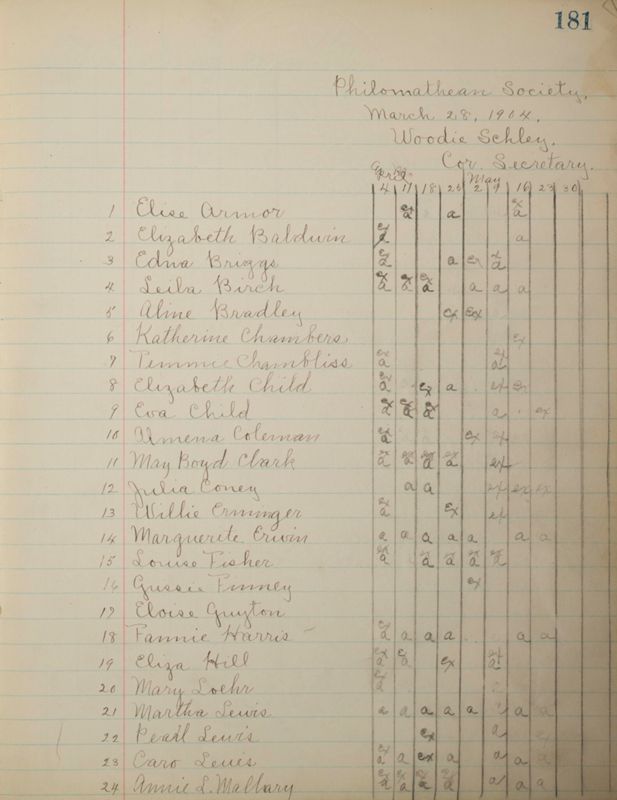 181
Philomathean Society.
March 28, 1904.
Woodie Schley.
Cor. Secretary.
April May
4 11 18 25 2 9 16 23 30
1 Elise Armor ex a a ex a
2 Elizabeth Baldwin ex a a
3 Edna Briggs ex a a ex ex a
4 Leila Birch ex a ex a ex a a a a
5 Aline Bradley ex ex
6 Katherine Chambers ex
7 Chambliss ex a ex a
8 Elizabeth Child ex a ex a ex ex
9 Eva Child ex a ex a ex a a ex
10 Almena Coleman ex a ex ex
11 May Boyd Clark ex a ex a ex a ex a ex
12 Julia Coney a a ex ex ex
13 Willie Erminger ex a ex ex
14 Marguerite Erwin a a a a a a a
15 Louise Fisher ex a ex a ex a ex a ex a
16 Gussie ex
17 Eloise Guyton
18 Fannie Harris ex a a a a a a
19 Eliza Hill ex a a ex ex a
20 Mary Loehr ex a
21 Martha Lewis a a a a a a a
22 Pearl Lewis ex a
23 Caro Lewis ex a a ex a a a a
24 Annie L. Mallary ex a ex a ex a ex a a a a